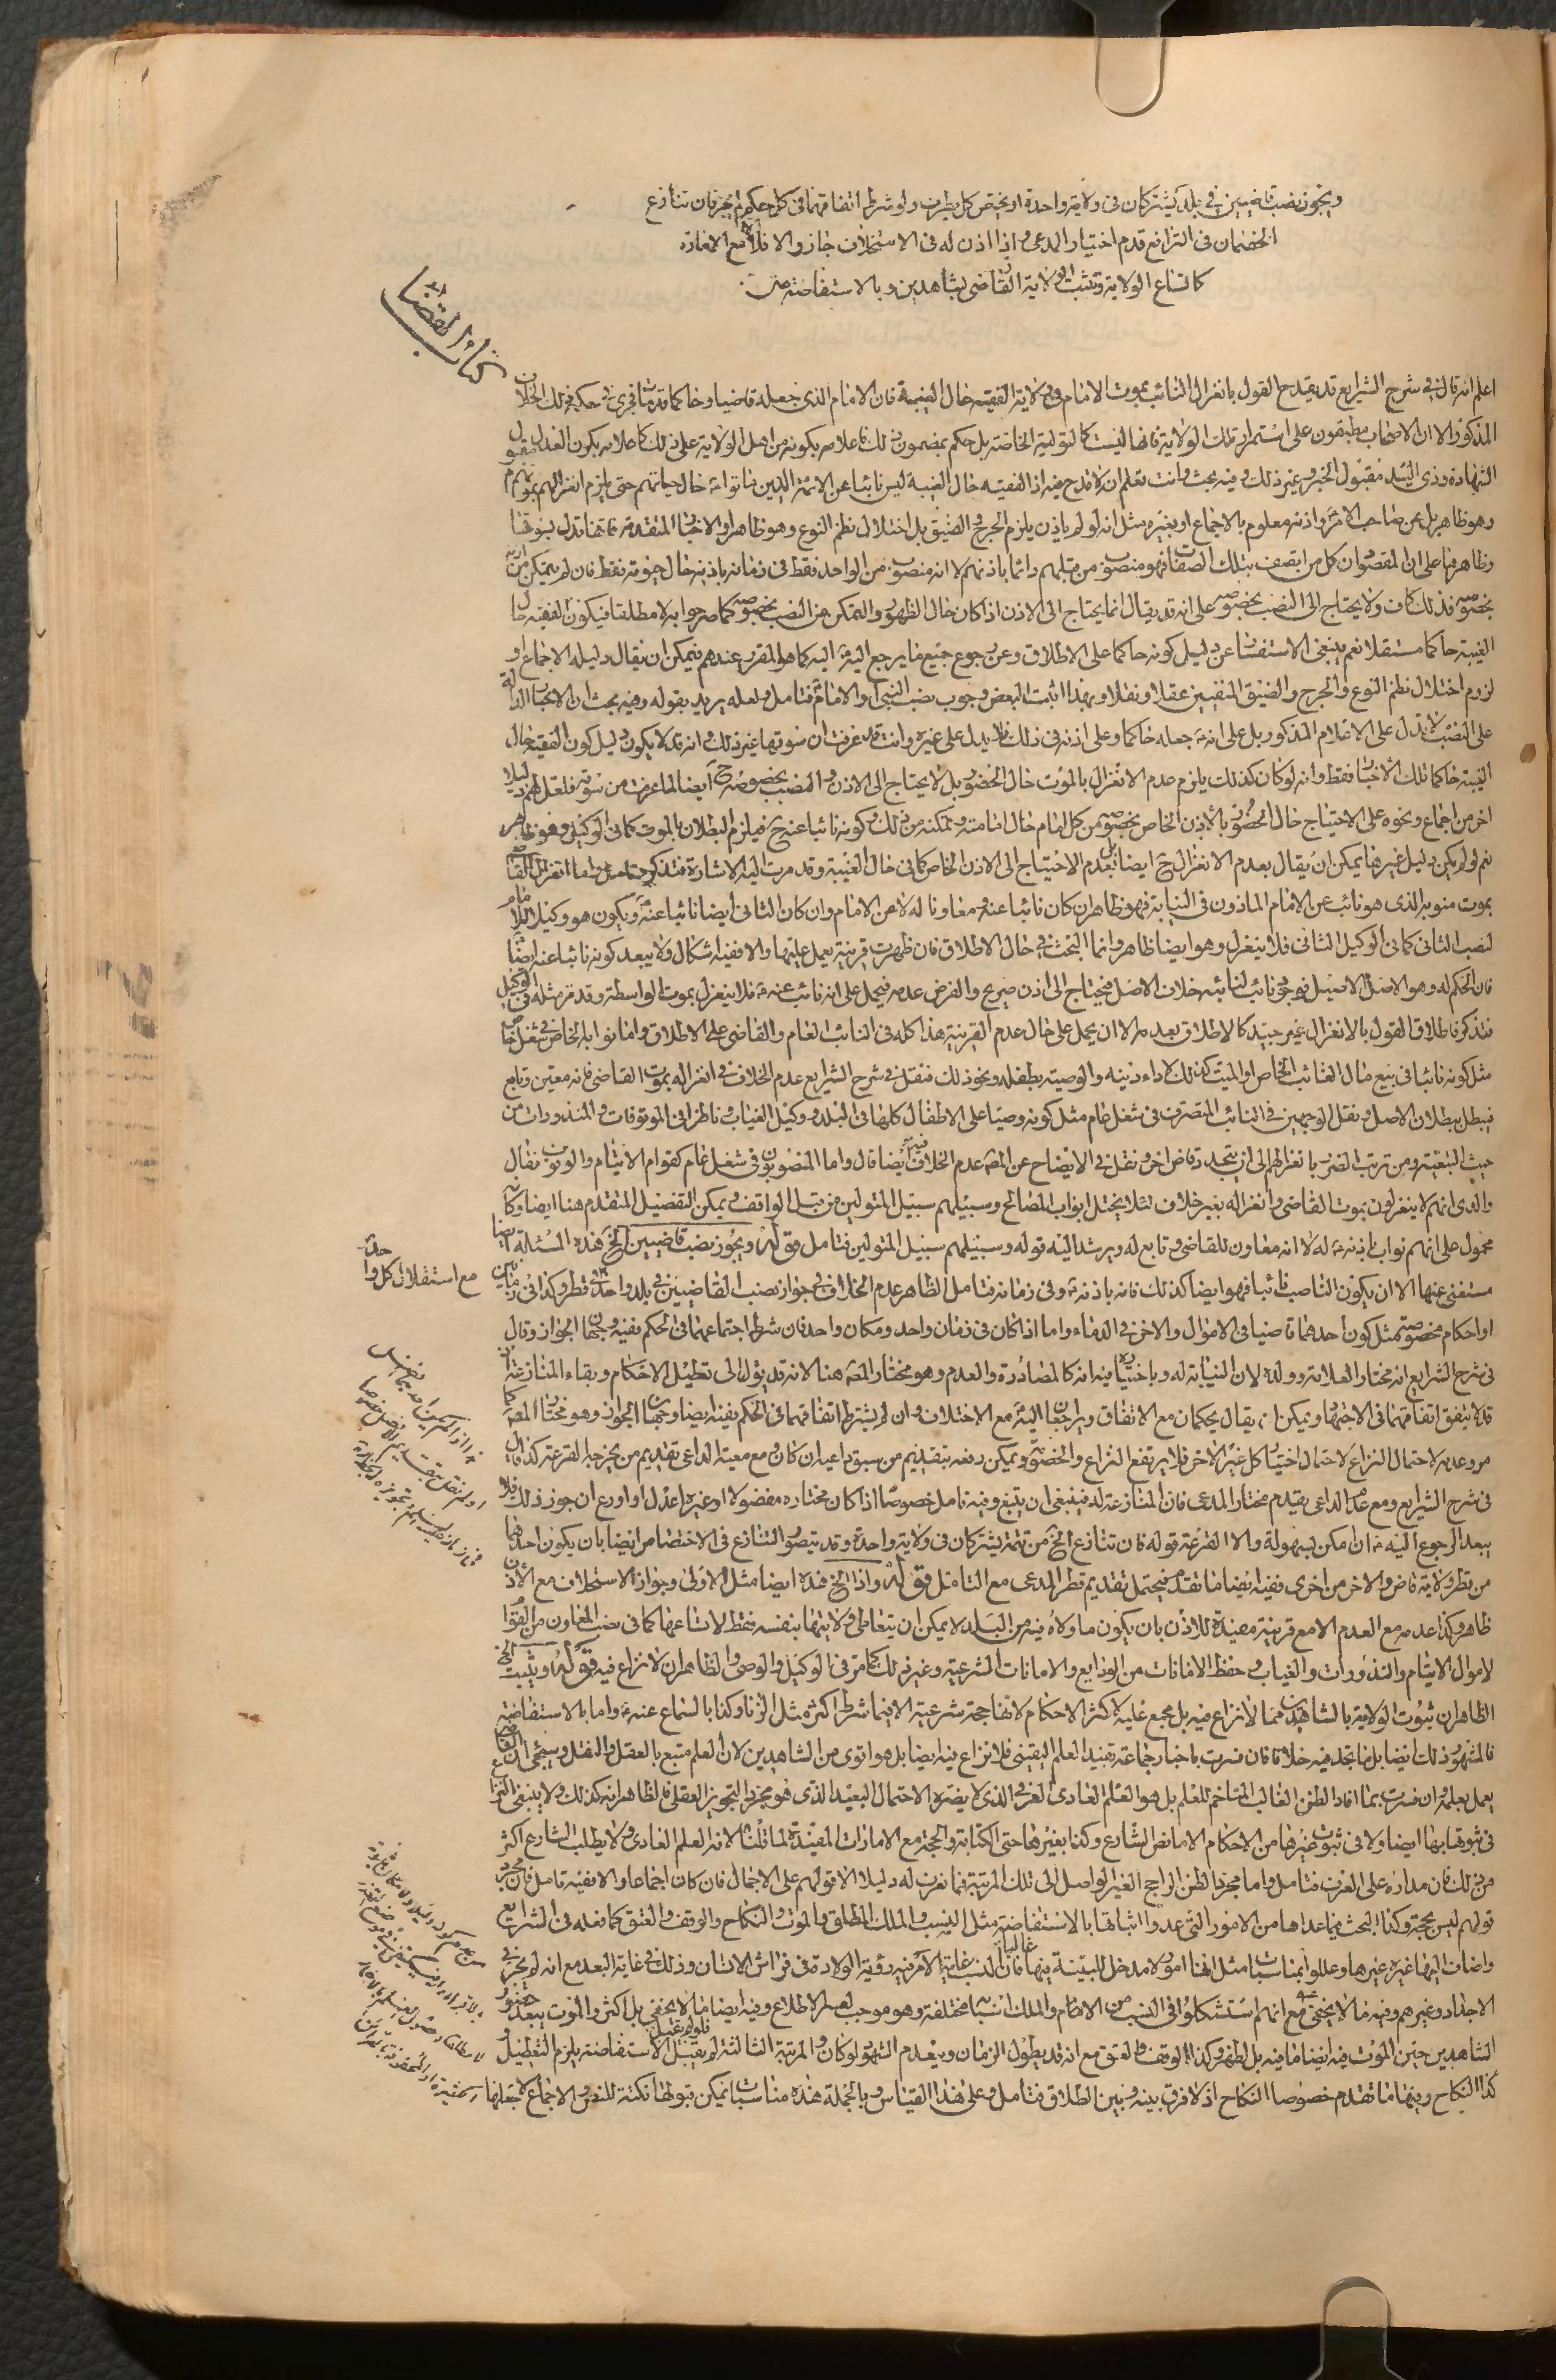 ويجوز نصب قاضيين في بلد يشتركان في ولاية واحدة او يختص كل بطرف ولو شرط اتفاقهما في كل حكم لم يجز فان تنازع
الخصمان في الترافع قدم اختيار المدعي واذا اذن له في الاستخلاف جاز والا فلا الا مع الامارة
كاتساع الولاية وتثبت الولاية القاضي بشاهدين وبالاستفاضة
كتاب القضا
اعلم انه قال في شرح الشرايع قد يقدح القول بانعزال النائب بموت الامام في ولاية الفقيه حال الغيبة فان الامام الذي جعله قاضيا وحاكما قد مات فجرى في حكمه ذلك الخلاف
المذكور الا ان الاصحاب مطبقون على استمرار تلك الولاية فانها ليست كالتولية الخاصة بل حكم بمضمون ذلك فاعلامه بكونه من اهل الولاية على ذلك كاعلامه بكون العدل مقبول
الشهادة وذي اليد مقبول الخبر وغير ذلك وفيه بحث وانت تعلم ان لا قدح فيه اذ الفقيه حال الغيبة ليس نائبا عن الائمة الذين ماتوا حال حياتهم حتى يلزم انعزالهم بموتهم
وهو ظاهر بل عن صاحب الامر واذنه معلوم بالاجماع او بغيره مثل انه لو لم ياذن يلزم الحرج والضيق بل اختلال نظم النوع وهو ظاهر او الاخبار المتقدمة فانها تدل بسوقها
وظاهرها على ان المقصود ان كل من اتصف بتلك الصفات فهو منصوب من قبلهم دائما باذنهم لا انه منصوب من الواحد فقط في زمانه باذنه حال حيوته فقط فان لم يتمكن
بخصوصه فذلك كاف ولا يحتاج الى النصب بخصوصه على انه قد يقال انما يحتاج الى الاذن اذا كان حال الظهور والتمكن من النصب بخصوصه كما صرحوا به لا مطلقا فيكون الفقيه حال
الغيبة حاكما مستقلا نعم ينبغي الاستفسار عن دليل كونه حاكما على الاطلاق وعن رجوع جميع ما يرجع اليه اليه كما هو المقرر عندهم فيمكن ان يقال دليله الاجماع او
لزوم اختلال نظم النوع والحرج والضيق المنفيين عقلا ونقلا وبهذا اثبت البعض وجوب نصب النبي او الامام فتامل ولعله يريد بقوله وفيه بحث ان الاخبار الدالة
على النصب لا تدل على الاعلام المذكور بل على انه جعله حاكما وعلى اذنه في ذلك فلا يدل على غيره وانت قد عرفت ان سوقها غير ذلك وانه قد لا يكون دليل كون الفقيه حال
الغيبة حاكما تلك الاخبار فقط وانه لو كان كذلك يلزم عدم الانعزال بالموت حال الحضور بل لا يحتاج الى الاذن والنصب بخصوصه ح ايضا لما عرفت من سوقه فلعل لهم دليلا
اخر من اجماع ونحوه على الاحتياج حال الحضور بالاذن الخاص بخصوصه من كل امام حال امامته وتمكنه من ذلك وكونه نائبا عنه ح فيلزم البطلان بالموت كما في الوكيل وهو ظاهر
نعم لو لم يكن دليل غيرها يمكن ان يقال بعدم الانعزال ح ايضا بل بعدم الاحتياج الى الاذن الخاص كما في حال الغيبة وقد مرت اليه الاشارة فتذكر وتامل واما انعزال القاضي
بموت منوبه الذي هو نائب عن الامام الماذون في النيابة فهو ظاهر ان كان نائبا عنه ومعاونا له لا عن الامام وان كان الثاني ايضا نائبا عنه ويكون هو وكيل الامام
لنصب الثاني كما في الوكيل الثاني فلا ينعزل وهو ايضا ظاهر وانما البحث في حال الاطلاق فان ظهرت قرينة يعمل عليها والا ففيه اشكال ولا يبعد كونه نائبا عنه ايضا
فان الحكم له وهو الاصل الاصيل فهو نائب لنائبه خلاف الاصل فيحتاج الى اذن صريح والفرض عدمه فيحمل على انه نائب عنه فلا ينعزل بموت الواسطة وقد مر مثله في الوكيل
فتذكر فاطلاق القول بالانعزال غير جيد كالاطلاق بعدمه الا ان يحمل على حال عدم القرينة هذا كله في النائب العام والقاضي على الاطلاق واما نوابه الخاص في شغل خاص
مثل كونه نائبا في بيع مال الغائب الخاص او الميت كذلك لاداء دينه والوصية بطفله ونحو ذلك فنقل في شرح الشرايع عدم الخلاف في انعزاله بموت القاضي فانه معين وتابع
فيبطل ببطلان الاصل ونقل الوجهين في النائب المتصرف في شغل عام مثل كونه وصيا على الاطفال كلها في البلد ووكيل الغياب وناظرا في الموقوفات والمنذورات من
حيث التبعية ومن ترتب الضرر بانعزالهم الى ان يتجدد قاض اخر ونقل في الايضاح عن المصنف عدم الخلاف فيه ايضا قال واما المنصوبون في شغل عام كقوام الايتام والوقوف فقال
والدي انهم لا ينعزلون بموت القاضي وانعزاله بغير خلاف لئلا يختل ابواب المصالح وسبيلهم سبيل المتولين من قبل الواقف ويمكن التفصيل المتقدم هنا ايضا وكانه
محمول على انهم نواب باذنه له لا انه معاون للقاضي وتابع له ويرشد اليه قوله وسبيلهم سبيل المتولين فتامل قوله ويجوز نصب قاضيين الخ هذه المسئلة ايضا
مستغنى عنها الا ان يكون الناصب نائبا فهو ايضا كذلك فانه باذنه وفي زمانه فتامل الظاهر عدم الخلاف في جواز نصب القاضيين في بلد واحد وقطر وكذا في زمانين
مع استقلال كل واحد
او احكام مخصوصة مثل كون احدهما قاضيا في الاموال والاخر في الدماء واما اذا كان في زمان واحد ومكان واحد فان شرط اجتماعهما في الحكم ففيه وجهان الجواز وقال
في شرح الشرايع انه مختار العلامة وولده لان النيابة له وباختياره فانه كالمصادرة والعدم وهو مختار المصنف هنا لانه قد يؤل الى تعطيل الاحكام وبقاء المنازعة
قد لا يتفق اتفاقهما في الاجتهاد ويمكن ان يقال يحكمان مع الاتفاق ويراجعان اليه مع الاختلاف وان لم يشترط اتفاقهما في الحكم ففيه ايضا وجهان الجواز وهو مختار المصنف كما
مر وعدمه لاحتمال النزاع لاحتمال اختيار كل غير الاخر فلا يرتفع النزاع والخصومة ويمكن دفعه بتقديم من سبق داعيه ان كان ومع معية الداعي تقديم من يخرجه القرعة كذا قال
في شرح الشرايع ومع عدم الداعي يقدم مختار المدعي فان المنازعة له فينبغي ان يتبع وفيه تامل خصوصا اذا كان مختاره مفضولا او غيره اعدل او اورع ان جوز ذلك فلا
يبعد الرجوع اليه ان امكن بسهولة والا القرعة قوله فان تنازع الخ من تتمة يشتركان في ولاية واحدة وقد يتصور التنازع في الاختصاص ايضا بان يكون احدهما
من قطر ولاية قاض والاخر من اخرى ففيه ايضا ما تقدم فيحتمل تقديم قطر المدعي مع التامل قوله واذا الخ هذه ايضا مثل الاولى وجواز الاستخلاف مع الاذن
ظاهر وكذا عدمه مع العدم الا مع قرينة مفيدة للاذن بان يكون ما ولاه فيه من البلد لا يمكن ان يتعاطى ولايتها بنفسه فقط لاتساعها كما في نصب المعاون من القوام
لاموال الايتام والنذورات والغياب وحفظ الامانات من الودايع والامانات الشرعية وغير ذلك كما مر في الوكيل والوصي والظاهر ان لا نزاع فيه قوله ويثبت الخ
الظاهر ان ثبوت الولاية بالشاهدين مما لا نزاع فيه بل مجمع عليه كاكثر الاحكام لانها حجة شرعية الا فيما شرط اكثر مثل الزنا وكذا بالسماع عنه واما بالاستفاضة
فالمشهور ذلك ايضا بل ما نجد فيه خلافا فان فسرت باخبار جماعة يفيد العلم اليقيني فلا نزاع فيه ايضا بل هو اقوى من الشاهدين لان العلم متبع بالعقل والنقل وسيجئ ان القاضي
يعمل بعلمه وان فسرت بما افاد الظن الغالب المتاخم للعلم بل هو العلم العادي العرفي الذي لا يضره الاحتمال البعيد الذي هو مجرد التجويز العقلي فالظاهر انه كذلك ولا ينبغي النزاع
في ثبوتها بها ايضا ولا في ثبوت غيرها من الاحكام الا ما نص الشارع وكذا بغيرها حتى الكتابة والحجة مع الامارات المفيدة لما قلناه لانه العلم العادي ولا يطلب الشارع اكثر
من ذلك فان مداره على العرف فتامل واما مجرد الظن الراجح الغير الواصل الى تلك المرتبة فما نعرف له دليلا الا قولهم على الاجمال فان كان اجماعا والا ففيه تامل فان مجرد
قولهم ليس بحجة وكذا البحث فيما عداها من الامور التي عدوا اثباتها بالاستفاضة مثل النسب والملك المطلق والموت والنكاح والوقف والعتق كما فعله في الشرايع
واضاف اليها غيره غيرها وعللوا بمناسبات مثل انها امور لا مدخل للبينة فيها غالبا فان النسب غاية الامر فيه رؤية الولادة في فراش الانسان وذلك في غاية البعد مع انه لم يجز في
الاجداد وغيرهم وفيه ما لا يخفى مع انهم استشكلوا في النسب من الام والملك اسبابه مختلفة وهو موجب لعسر الاطلاع وفيه ايضا ما لا يخفى بل اكثر والموت يبعد حضور
الشاهدين حين الموت فيه ايضا ما فيه بل اظهر وكذا الوقف والعتق مع انه قد يطول الزمان ويعدم الشهود لو كان والمرتبة الثالثة لم يقبل فلو لم يقبل الاستفاضة يلزم التعطيل و
كذا النكاح وفيهما ما تقدم خصوصا النكاح اذ لا فرق بينه وبين الطلاق فتامل وعلى هذا القياس وبالجملة هذه مناسبات يمكن قبولها نكتة للنص والاجماع لا جعلها